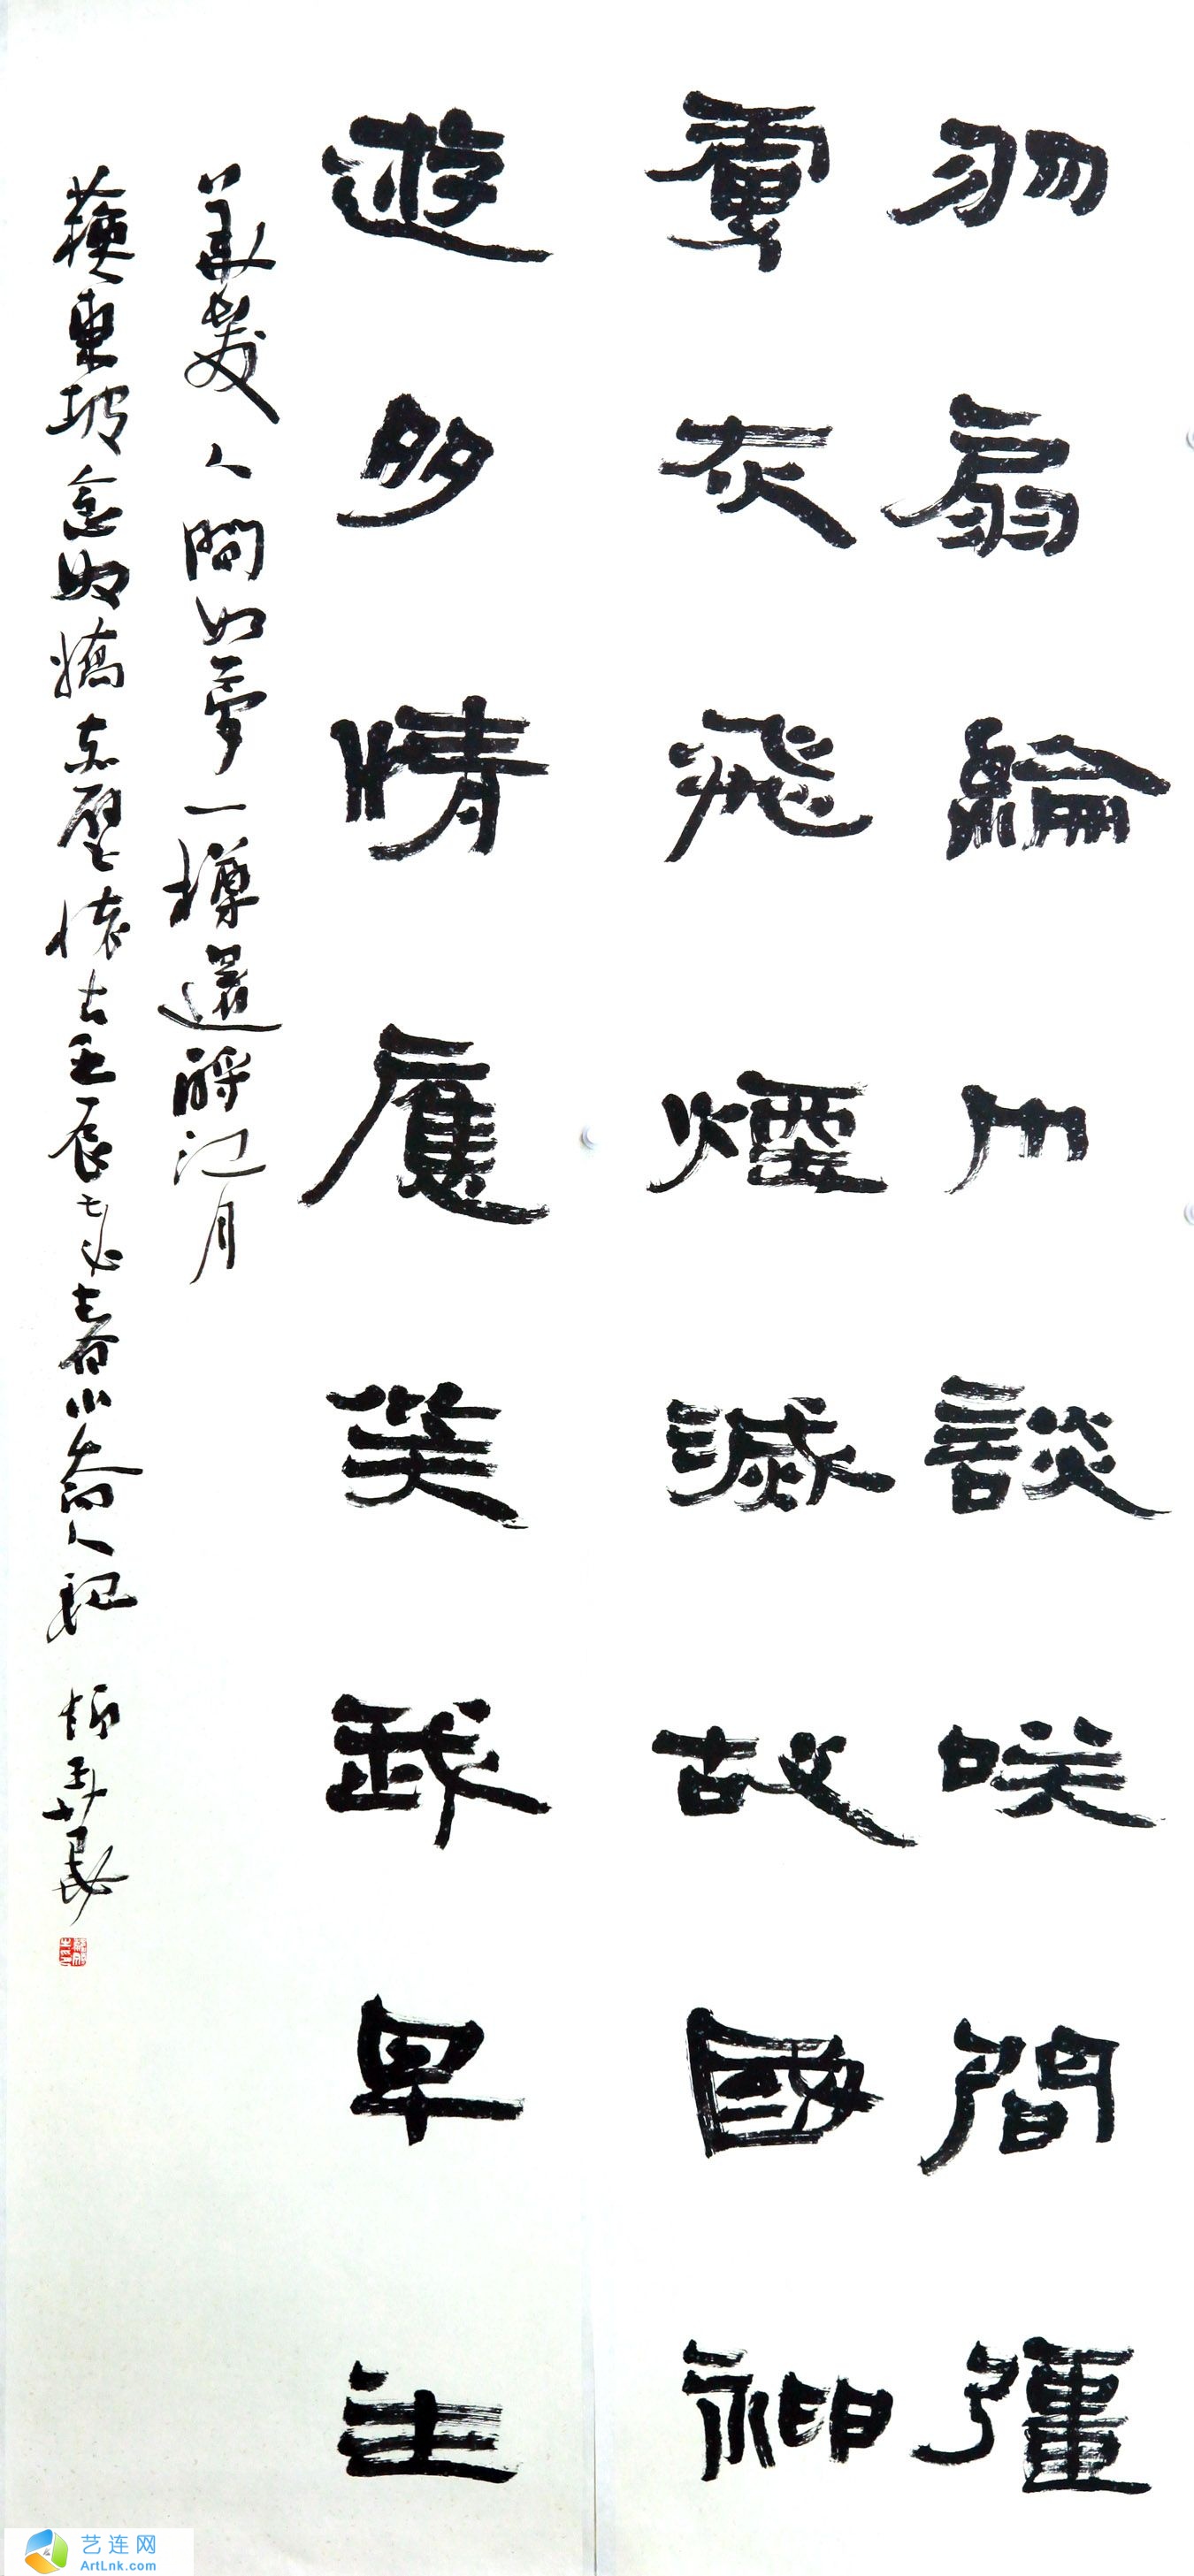 羽扇綸巾談咲間彊
虜灰飛煙滅故國神
遊多情應笑我早生
華髮人間如夢一樽還酹江月
蘇東坡念奴嬌赤壁懷古壬辰
艺连网
ArtLnk.com